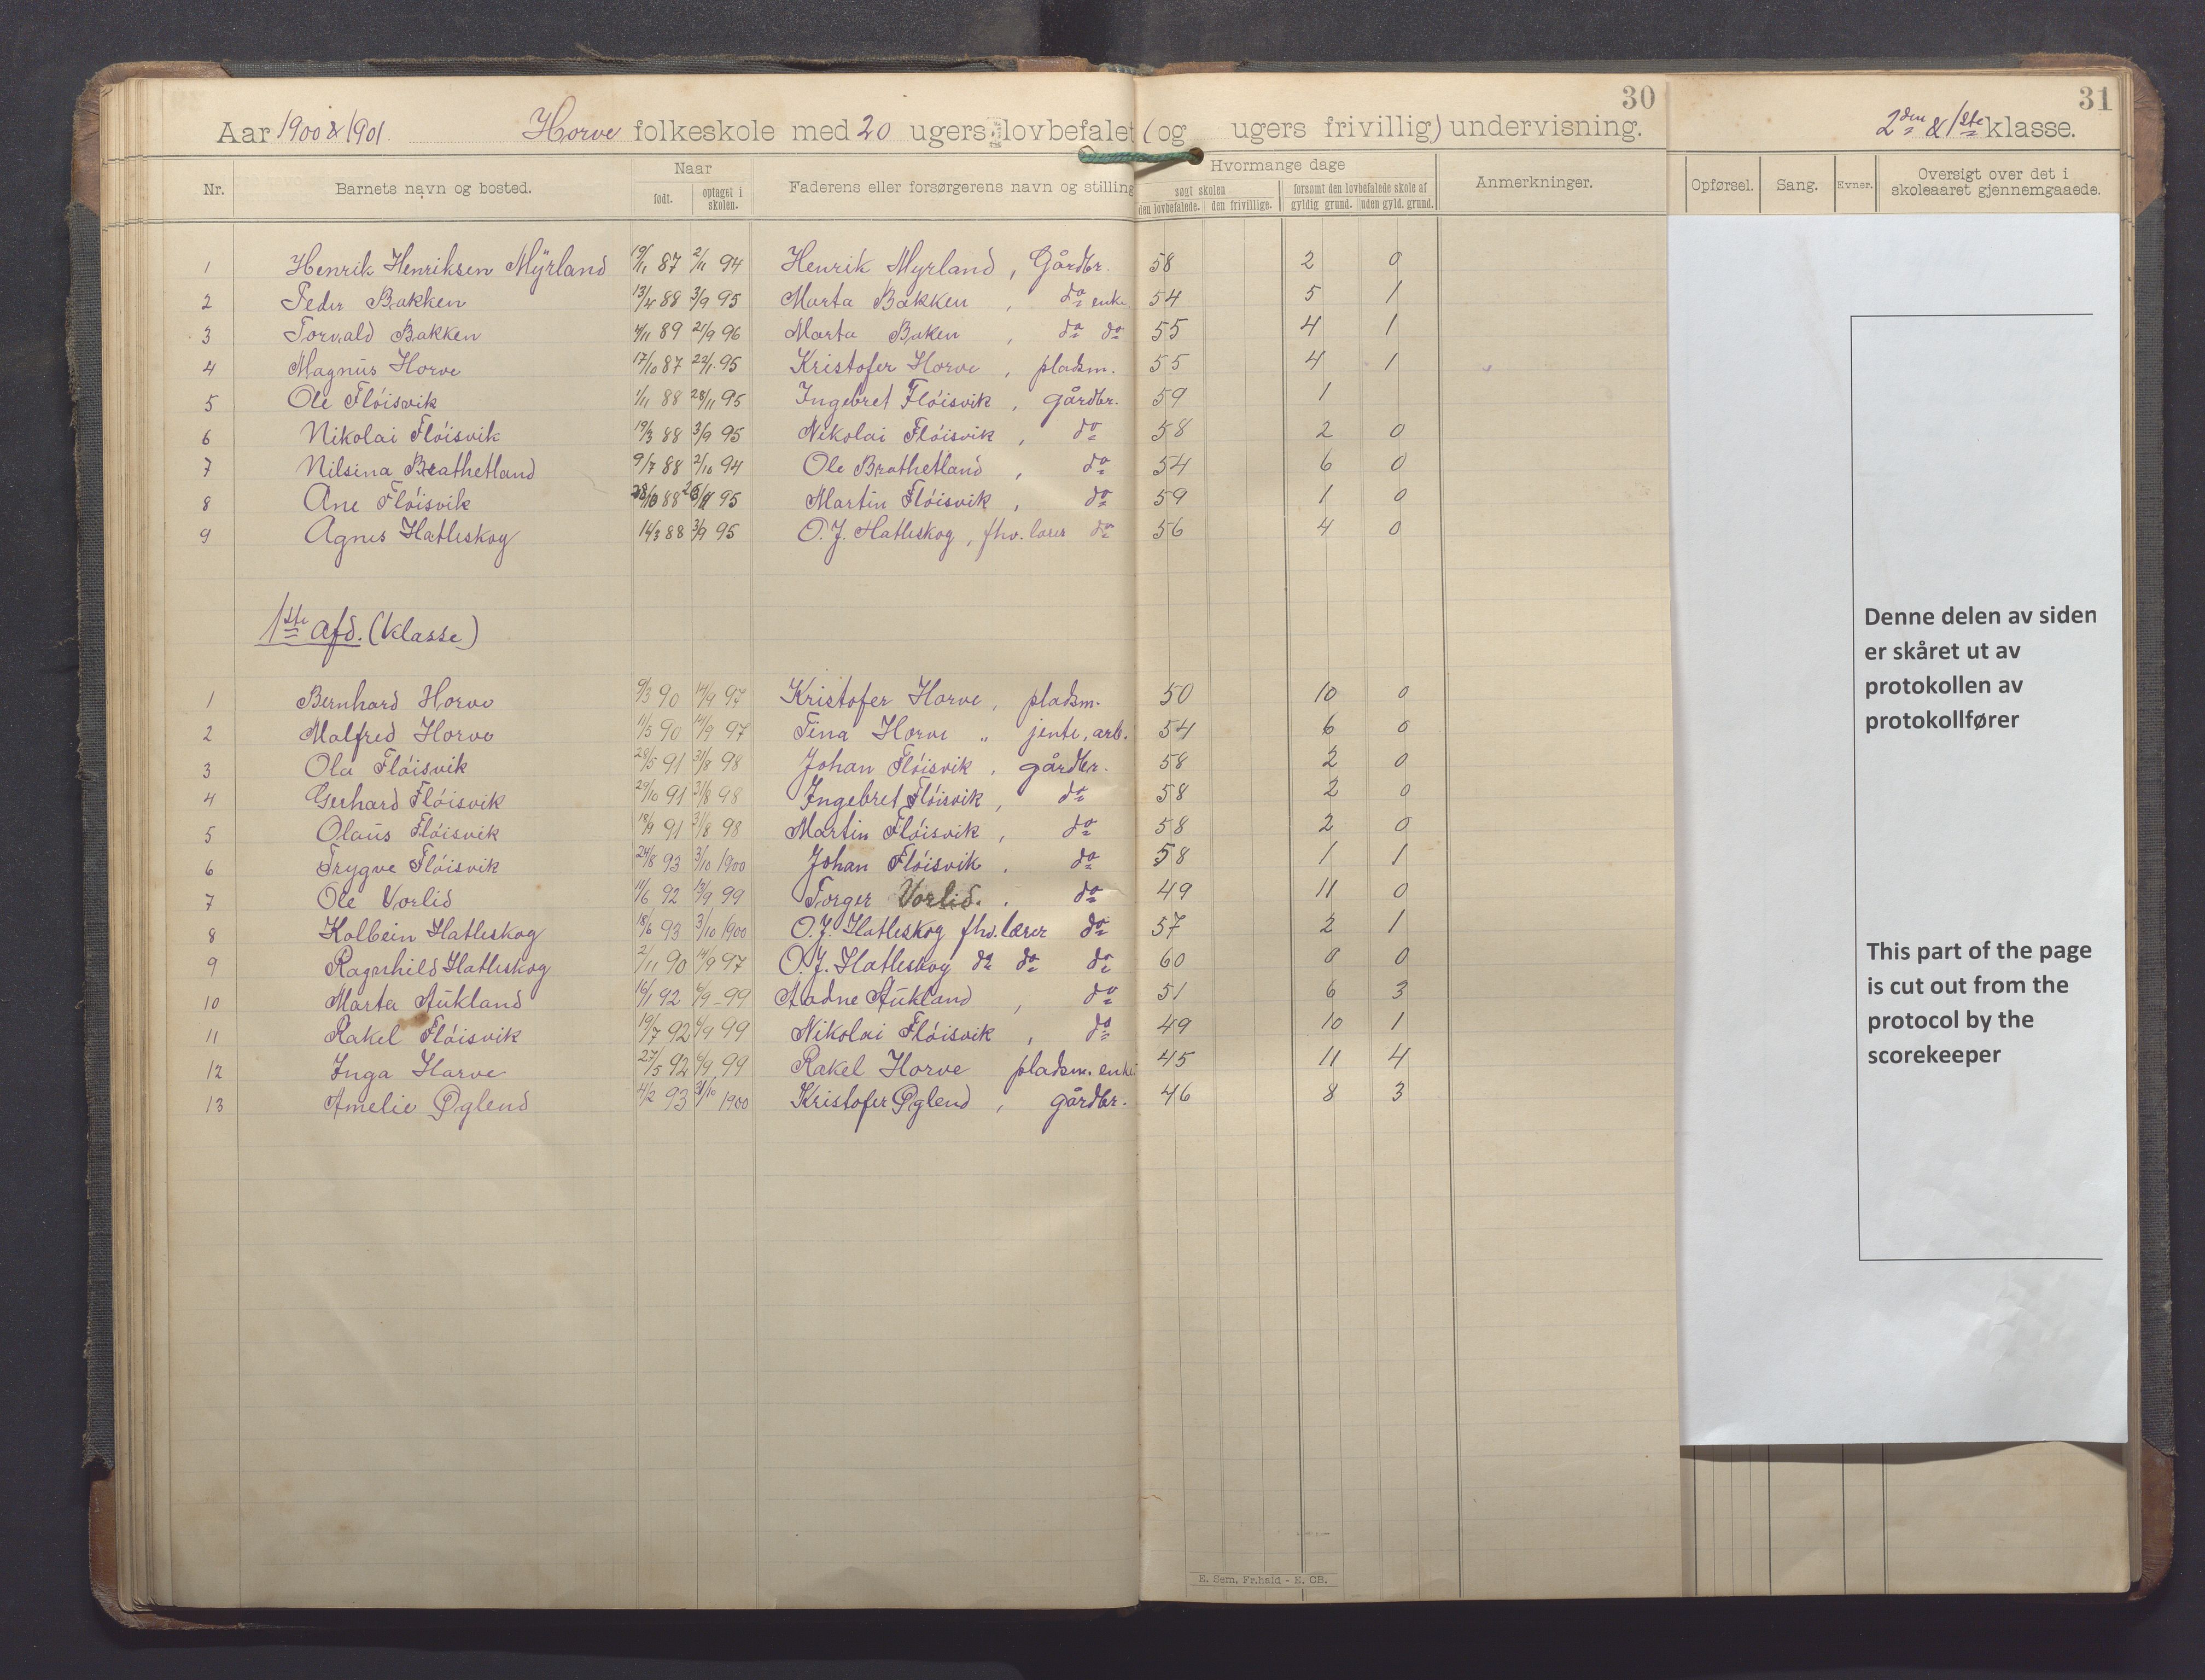 30
31
Aar 1900 & 1901. Horve folkeskole med 20 ugers lovbefalet (og ugers frivillig) undervisning. 2den & 1ste klasse.
Nr. Barnets navn og bosted. Naar født. optaget i skolen. Faderens eller forsørgerens navn og stilling Hvormange dage søgt skolen den lovbefalede. den frivillige. forsømt den lovbefalede skole af gyldig grund. uden gyld. grund. Anmerkninger. Opførsel. Sang. Evner. Oversigt over det i skoleaaret gjennemgaaede.
1 Henrik Henriksen Myrland 19/11 87 2/11 94 Henrik Myrland, Gårdbr. 58 2 0
2 Peder Bakken 13/4 88 3/9 95 Marta Bakken, do enke 54 5 1
3 Torvald Bakken 4/11 89 21/9 96 Marta Baken, do do 55 4 1
4 Magnus Horve 17/10 87 22/1 95 Kristofer Horve, pladsm. 55 4 1
5 Ole Fløisvik 1/11 88 28/11 95 Ingebret Fløisvik, gårdbr. 59 1
6 Nikolai Fløisvik 19/3 88 3/9 95 Nikolai Fløisvik, do 58 2 0
7 Nilsina Brathetland 9/7 88 2/10 94 Ole Brathetland, do 54 6 0
8 Ane Fløisvik 88 95 Martin Fløisvik, do 59 1 0
9 Agnes Hatleskog 14/3 88 3/9 95 O. J. Hatleskog, fhv. lærer do 56 4 0
1ste afd. (klasse)
1 Bernhard Horve 9/3 90 14/9 97 Kristofer Horve, pladsm. 50 10 0
2 Malfred Horve 11/5 90 14/9 97 Tina Horve „ jente, arb. 54 6 0
3 Ola Fløisvik 28/5 91 31/8 98 Johan Fløisvik, gårdbr. 58 2 0
4 Gerhard Fløisvik 29/10 91 31/8 98 Ingebret Fløisvik, do 58 2 0
5 Olaus Fløisvik 18/9 91 31/8 98 Martin Fløisvik, do 58 2 0
6 Trygve Fløisvik 24/8 93 3/10 1900 Johan Fløisvik. do 58 1 1
7 Ole Vorlid 11/6 92 13/9 99 Torger Vorlid. do 49 11 0
8 Kolbein Hatleskog 18/6 93 3/10 1900 O. J. Hatleskog fhv. lærer do 57 2 1
9 Ragnhild Hatleskog 2/11 90 14/9 97 O. J. Hatleskog do do do 60 0 0
10 Marta Aukland 16/1 92 6/9 - 99 Aadne Aukland, do 51 6 3
11 Rakel Fløisvik 19/7 92 6/9 99 Nikolai Fløisvik, do 49 10 1
12 Inga Horve 27/5 92 6/9 99 Rakel Horve pladsm. enke 45 11 4
13 Amelie Øglend 4/2 93 31/10 1900 Kristofer Øglend, gårdbr. 46 8 3
Denne delen av siden
er skåret ut av
protokollen av
protokollfører
This part of the page
is cut out from the
protocol by the
scorekeeper
E. Sem, Fr.hald - E. CB.